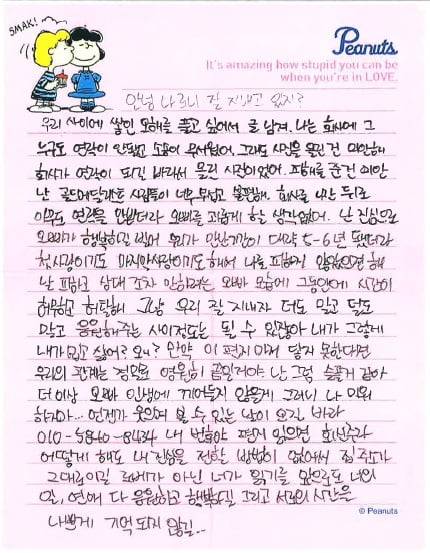 SMAK!
Peanuts
It's amazing how stupid you can be
when you're in LOVE.
안녕 나르니 잘 지내고 있지?
우리 사이에 쌓인 오해를 풀고 싶어서 글 남겨. 나는 회사에 그
누구도 연락이 안됐고 소송이 무서웠어. 그래도 사진을 올린 건 미안해
회사가 연락이 되길 바래서 올린 사진이었어. 피해를 준건 미안
난 골드메달리스트 사람들이 너무 무섭고 불편해. 회사를 나간 뒤로
아무도 연락을 안받더라 오빠를 괴롭게 할 생각없어. 난 진심으로
오빠가 행복하길 빌어 우리가 만난기간이 대략 5-6년 됐더라
첫사랑이기도 마지막사랑이기도 해서 나를 피하지 않았으면 해
난 피하고 상대 조차 안하려는 오빠 모습에 그동안에 시간이
허무하고 허탈해 그냥 우리 잘 지내자 더도 말고 덜도
말고 응원해주는 사이정도는 될 수 있잖아 내가 그렇게
내가 밉고 싫어? 왜? 만약 이 편지마저 닿지 못한다면
우리의 관계는 정말로 영원히 끝일거야 난 그럼 슬플거 같아
더이상 오빠 인생에 끼어들지 않을게 그러니 나 미워
하지마... 언젠가 웃으며 볼 수 있는 날이 오길 바라
010-5840-8434 내 번호야 편지 읽으면 회신주라
어떻게 해도 내 진심을 전할 방법이 없어서 집 주소가
그대로이길 로베가 아닌 너가 읽기를 앞으로도 너의
일, 연애 다 응원하고 행복하길 그리고 서로의 시간을
나쁘게 기억 되지 않길..
© Peanuts